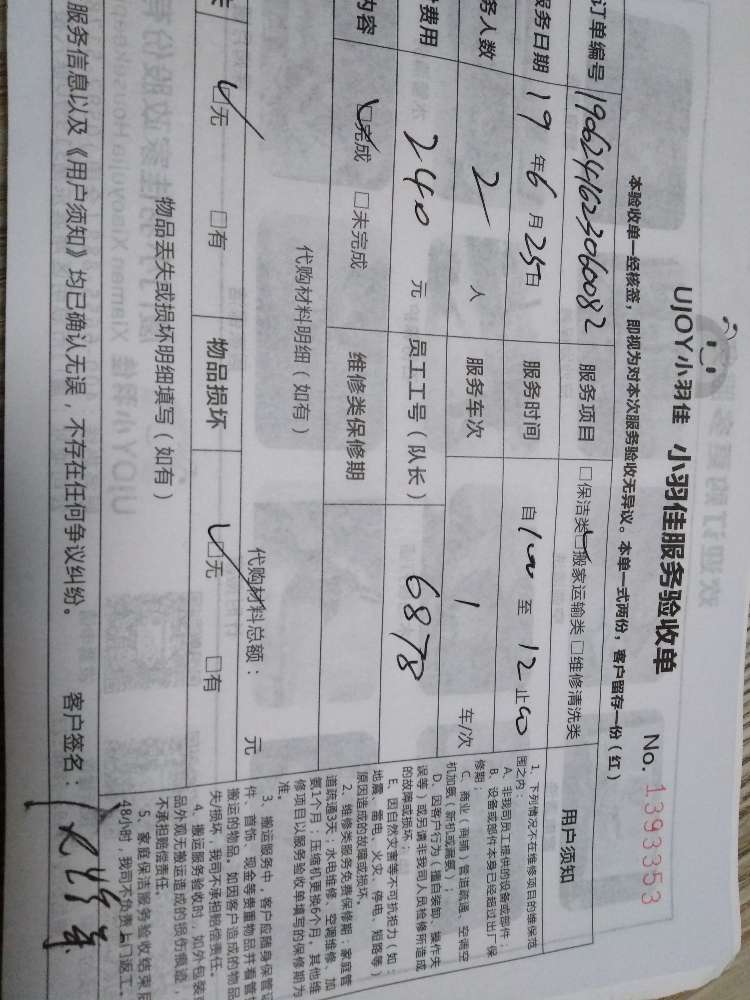 UJOY小羽佳 小羽佳服务验收单 No. 1393353
本验收单一经核签，即视为对本次服务验收无异议。本单一式两份，客户留存一份（红）
订单编号 服务项目 □保洁类 □搬家运输类 □维修清洗类
服务日期 19年6月25日 服务时间 自 至 12 止
务人数 2 人 服务车次 1 车/次
费用 240 元 员工工号（队长） 6878
内容 □完成 □未完成 维修类保修期
代购材料明细（如有） 代购材料总额： 元
□无 □有 物品损坏 □无 □有
物品丢失或损坏明细填写（如有）
服务信息以及《用户须知》均已确认无误，不存在任何争议纠纷。 客户签名：
用户须知
1、下列情况不在维修项目的维保范
围之内：
A、非我司员工提供的设备或部件；
B、设备或部件本身已经超过出厂保
修期；
C、商业（商铺）管道疏通、空调空
机加氨（新机或漏氨）；
D、因客户行为（擅自装卸、操作失
误等）或另请非我司人员检修所造成
的故障或损坏；
E、因自然灾害等不可抗拒力（如：
地震、雷电、火灾、停电、短路等）
原因造成的故障或损坏。
2、维修类服务免费保修期：家庭管
道疏通3天；水电维修、空调维修、加
氨1个月；压缩机更换6个月。其他维
修项目以服务验收单填写的保修期为
准。
3、搬运服务中，客户应随身保管证
件、首饰、现金等贵重物品并看管
搬运的物品。如因客户造成的物品
失/损坏，我司不承担赔偿责任。
4、搬运服务验收时，如外包装
品外观无搬运造成的损伤痕迹，
不承担赔偿责任。
5、家庭保洁服务验收结束后
48小时，我司不负责上门返工。